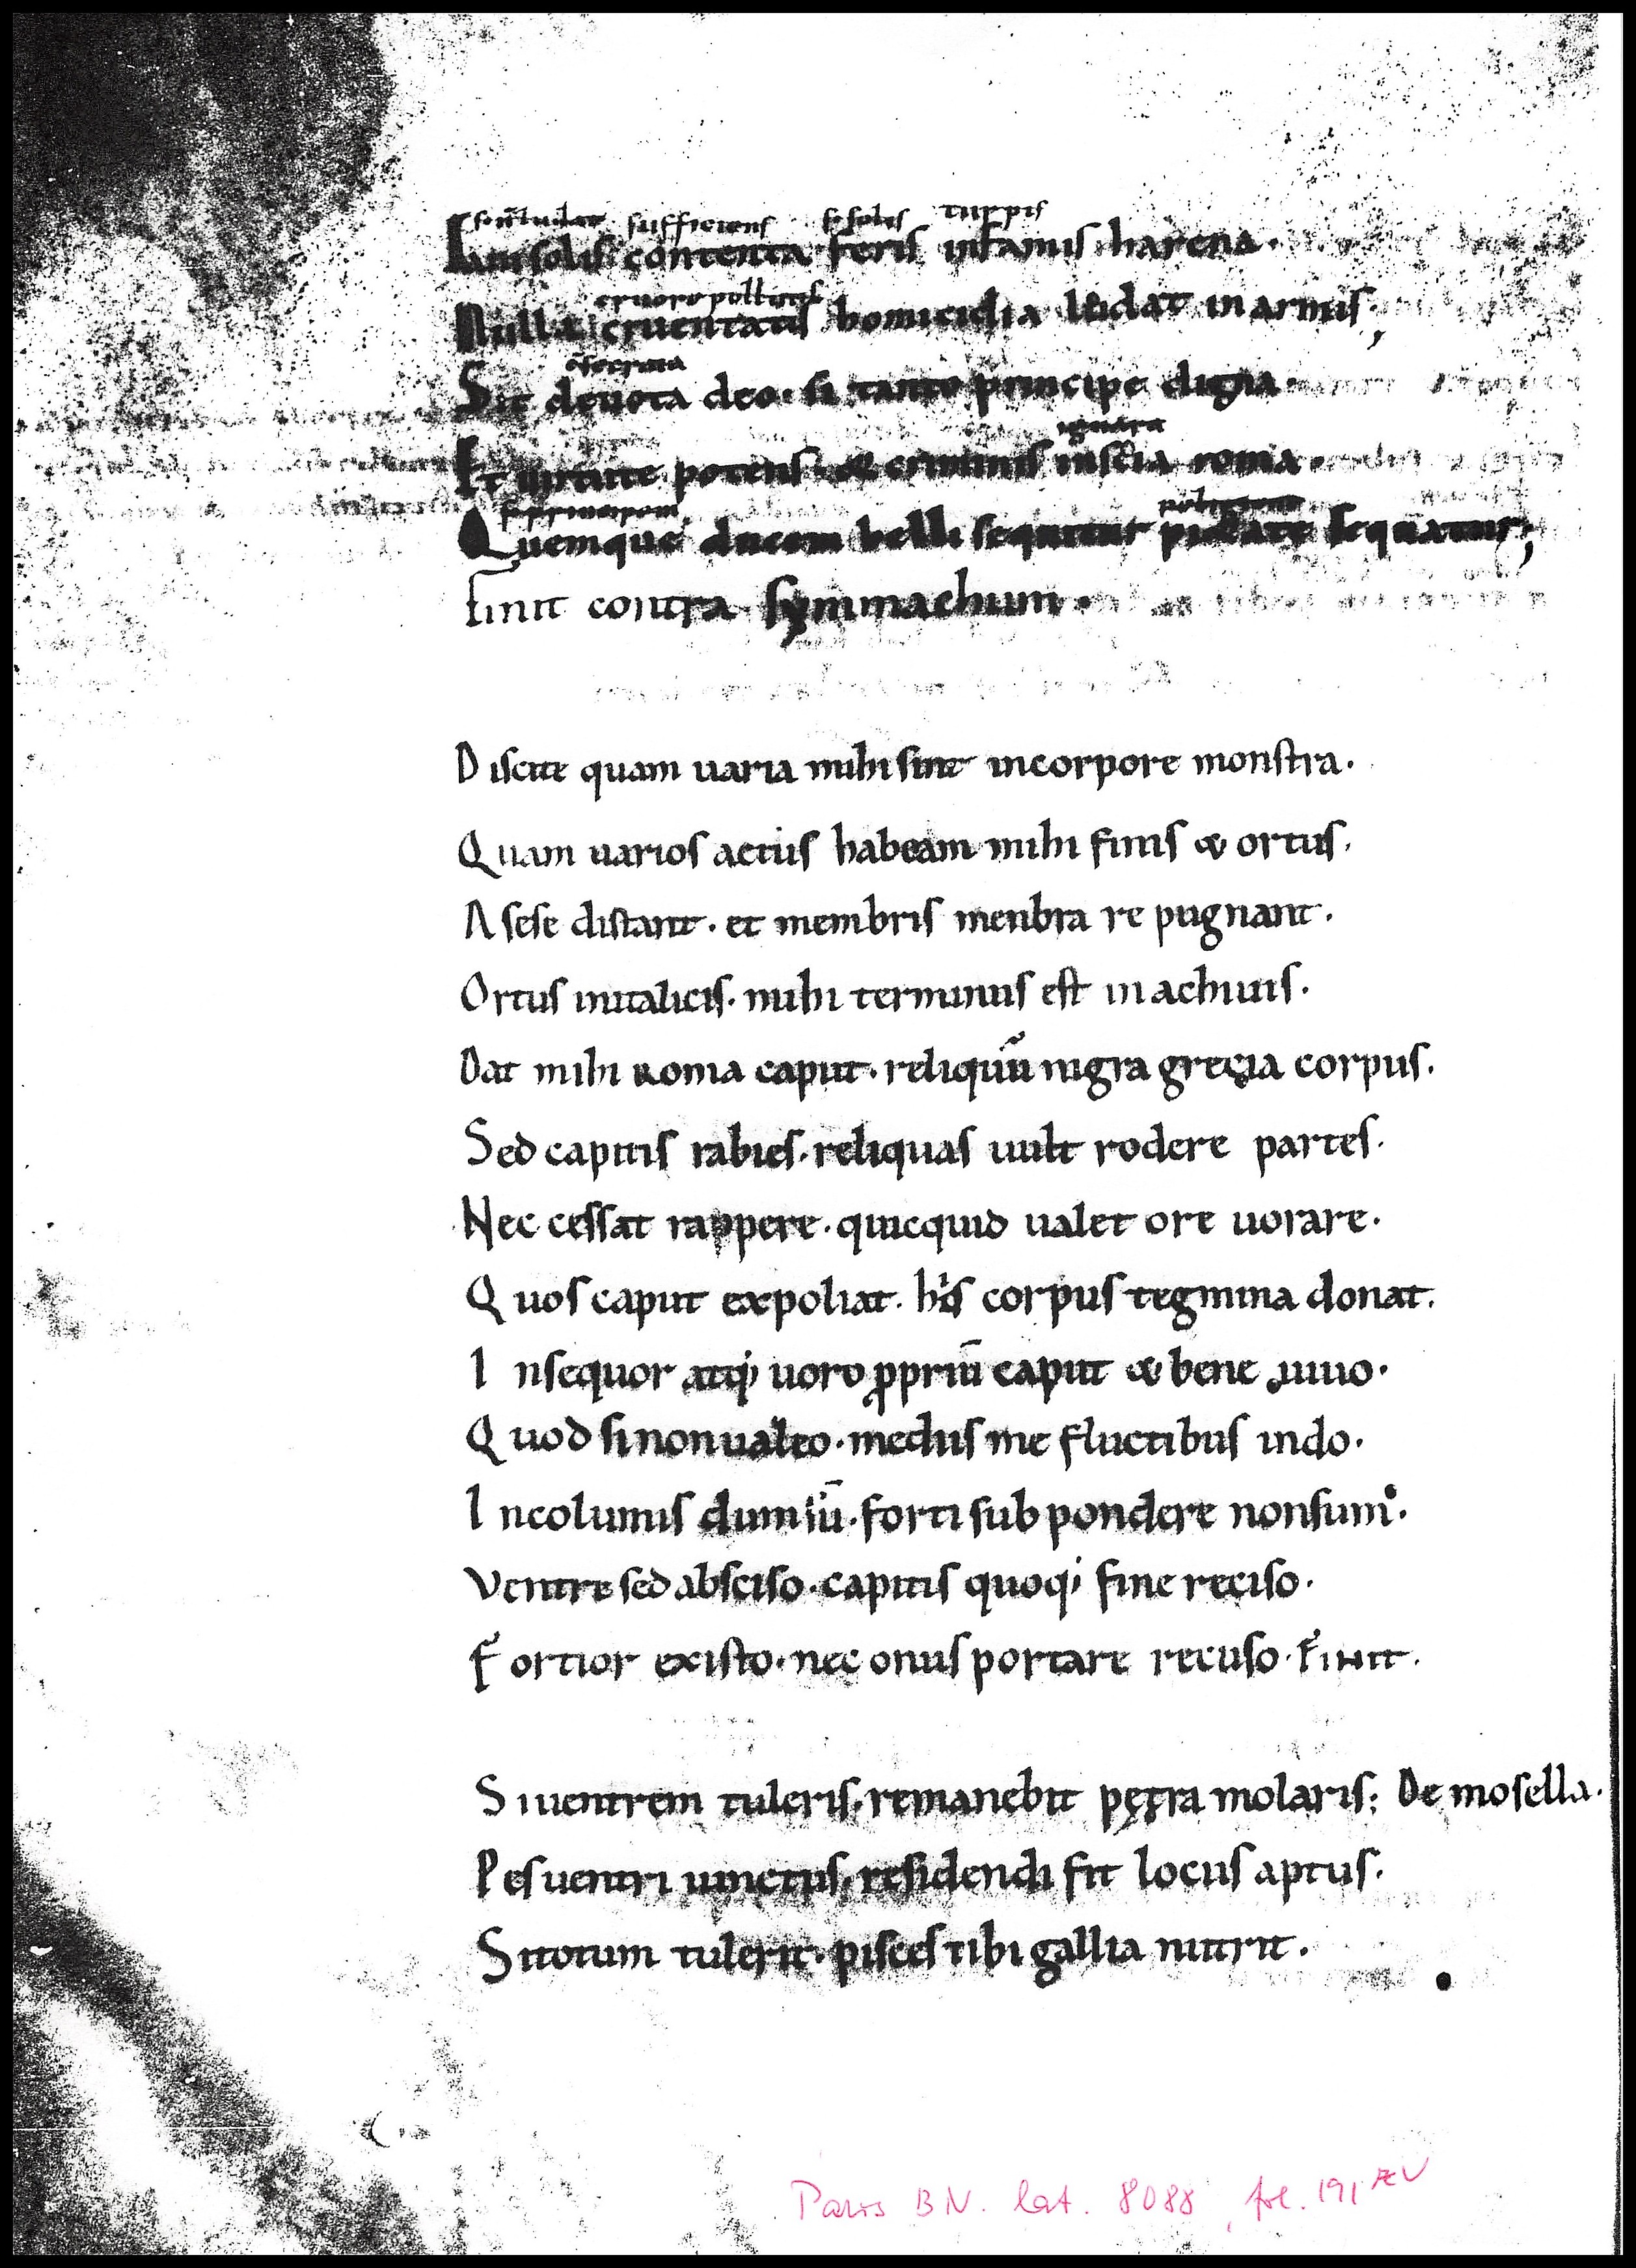 sufficiens s. solis turpis
Iam solis contenta feris infamis harena.
cruore pollutis
Nulla cruentatis homicidia ludat in armis;
Sit deuota deo. si tanto principe digna
ignara
Et uirtute potens. & criminis inscia roma.
s. principem
Quemque ducem belli sequitur pietate sequatur;
finit contra symmachum.
Discite quam uaria mihi sint incorpore monstra.
Quam uarios actus habeam mihi finis & ortus.
A sese distant. et membris menbra re pugnant.
Ortus initalicis. mihi terminus est inachiuis.
Dat mihi Roma caput. reliquũ nigra gręcia corpus.
Sed capitis rabies. reliquas uult rodere partes.
Nec cessat rappere. quicquid ualet ore uorare.
Quos caput expoliat. his corpus tegmina donat.
I nsequor atq; uoro ꝓpriũ caput & bene uiuo.
Quod si non ualeo. mediis me fluctibus indo.
I ncolumis dum sũ. forti sub pondere nonsum.
Ventre sed absciso. capitis quoq; fine reciso.
F ortior existo. nec onus portare recuso. finit.
S iuentrem tuleris. remanebit pętra molaris; De mosella.
Pes uentri uinctus. residendi fit locus aptus.
Sitotum tulerit. pisces tibi gallia nutrit.
Paris BN. lat. 8088, fol. 191